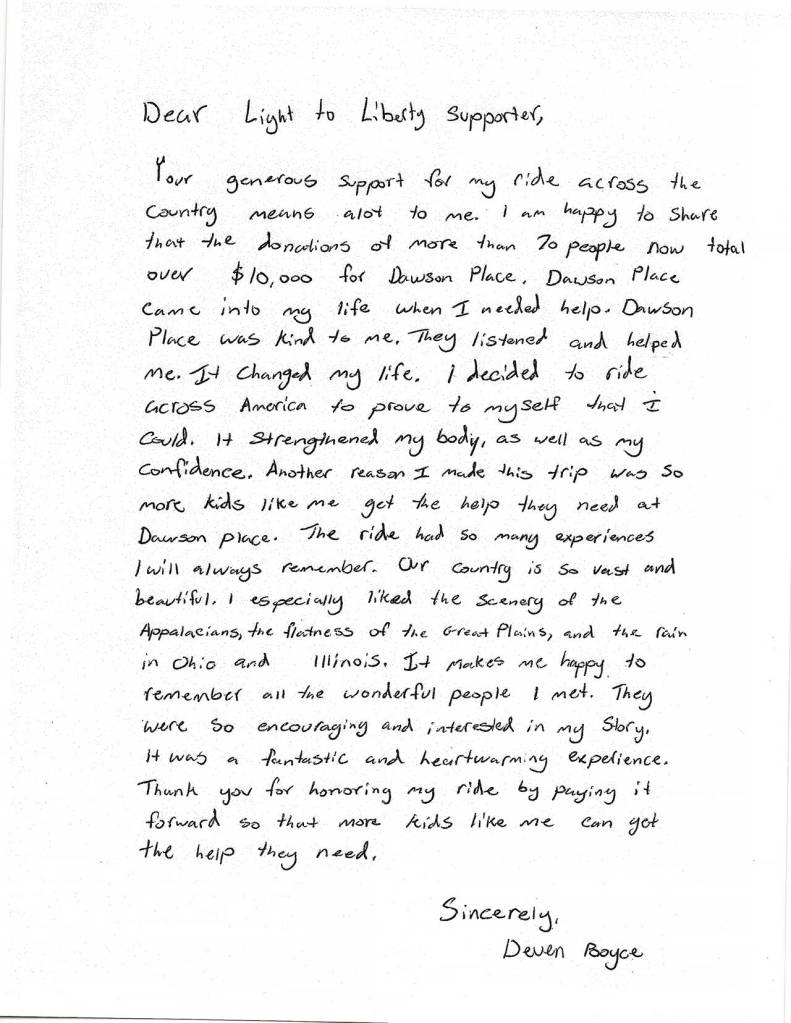 Dear Light to Liberty supporter,
Your generous support for my ride across the
Country means alot to me. I am happy to share
that the donations of more than 70 people now total
over $10,000 for Dawson Place. Dawson Place
came into my life when I needed help. Dawson
Place was kind to me. They listened and helped
me. It changed my life. I decided to ride
across America to prove to myself that I
could. It strengthened my body, as well as my
confidence. Another reason I made this trip was so
more kids like me get the help they need at
Dawson place. The ride had so many experiences
I will always remember. Our country is so vast and
beautiful. I especially liked the scenery of the
Appalacians, the flatness of the Great Plains, and the rain
in Ohio and Illinois. It makes me happy to
remember all the wonderful people I met. They
were so encouraging and interested in my story.
It was a fantastic and heartwarming experience.
Thank you for honoring my ride by paying it
forward so that more kids like me can get
the help they need.
Sincerely,
Deven Boyce